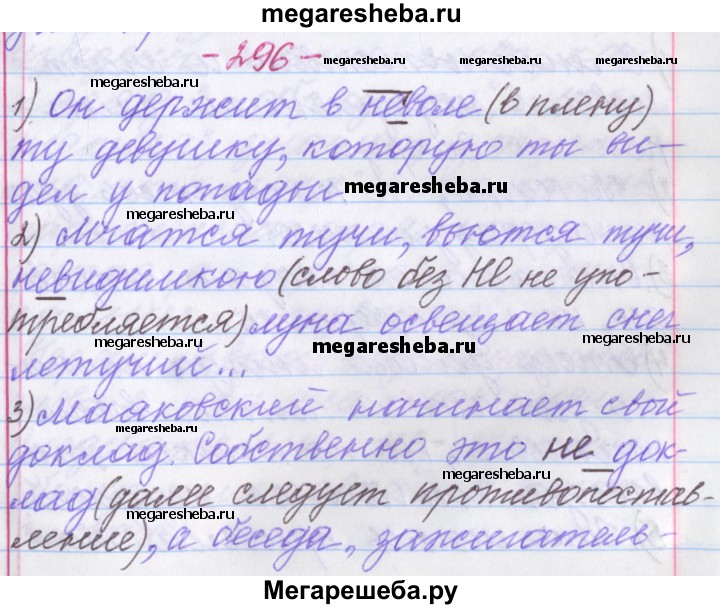 megaresheba.ru
- 296 -
megaresheba.ru
megaresheba.ru
megaresheba.ru
1) Он держит в неволе (в плену)
ту девушку, которую ты ви-
дел у попадьи.
megaresheba.ru
megaresheba.ru
2) Мчатся тучи, вьются тучи,
невидимкою (слово без НЕ не упо-
требляется) луна освещает снег
megaresheba.ru
летучий...
3) Маяковский начинает свой
megaresheba.ru
доклад. Собственно это не док-
megaresheba.ru
лад (далее следует противопостав-
megaresheba.ru
ление), а беседа, зажигатель-
Мегарешеба.ру